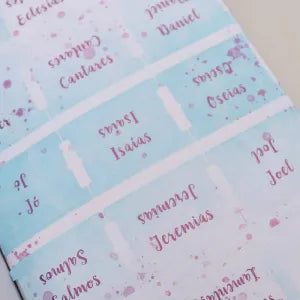 Eclesias
Daniel
Daniel
Cantares
Cantares
Oseias
Oseias
Isaías
Isaías
Joel
Joel
Jó
Jó
Jeremias
Jeremias
Salmos
Salmos